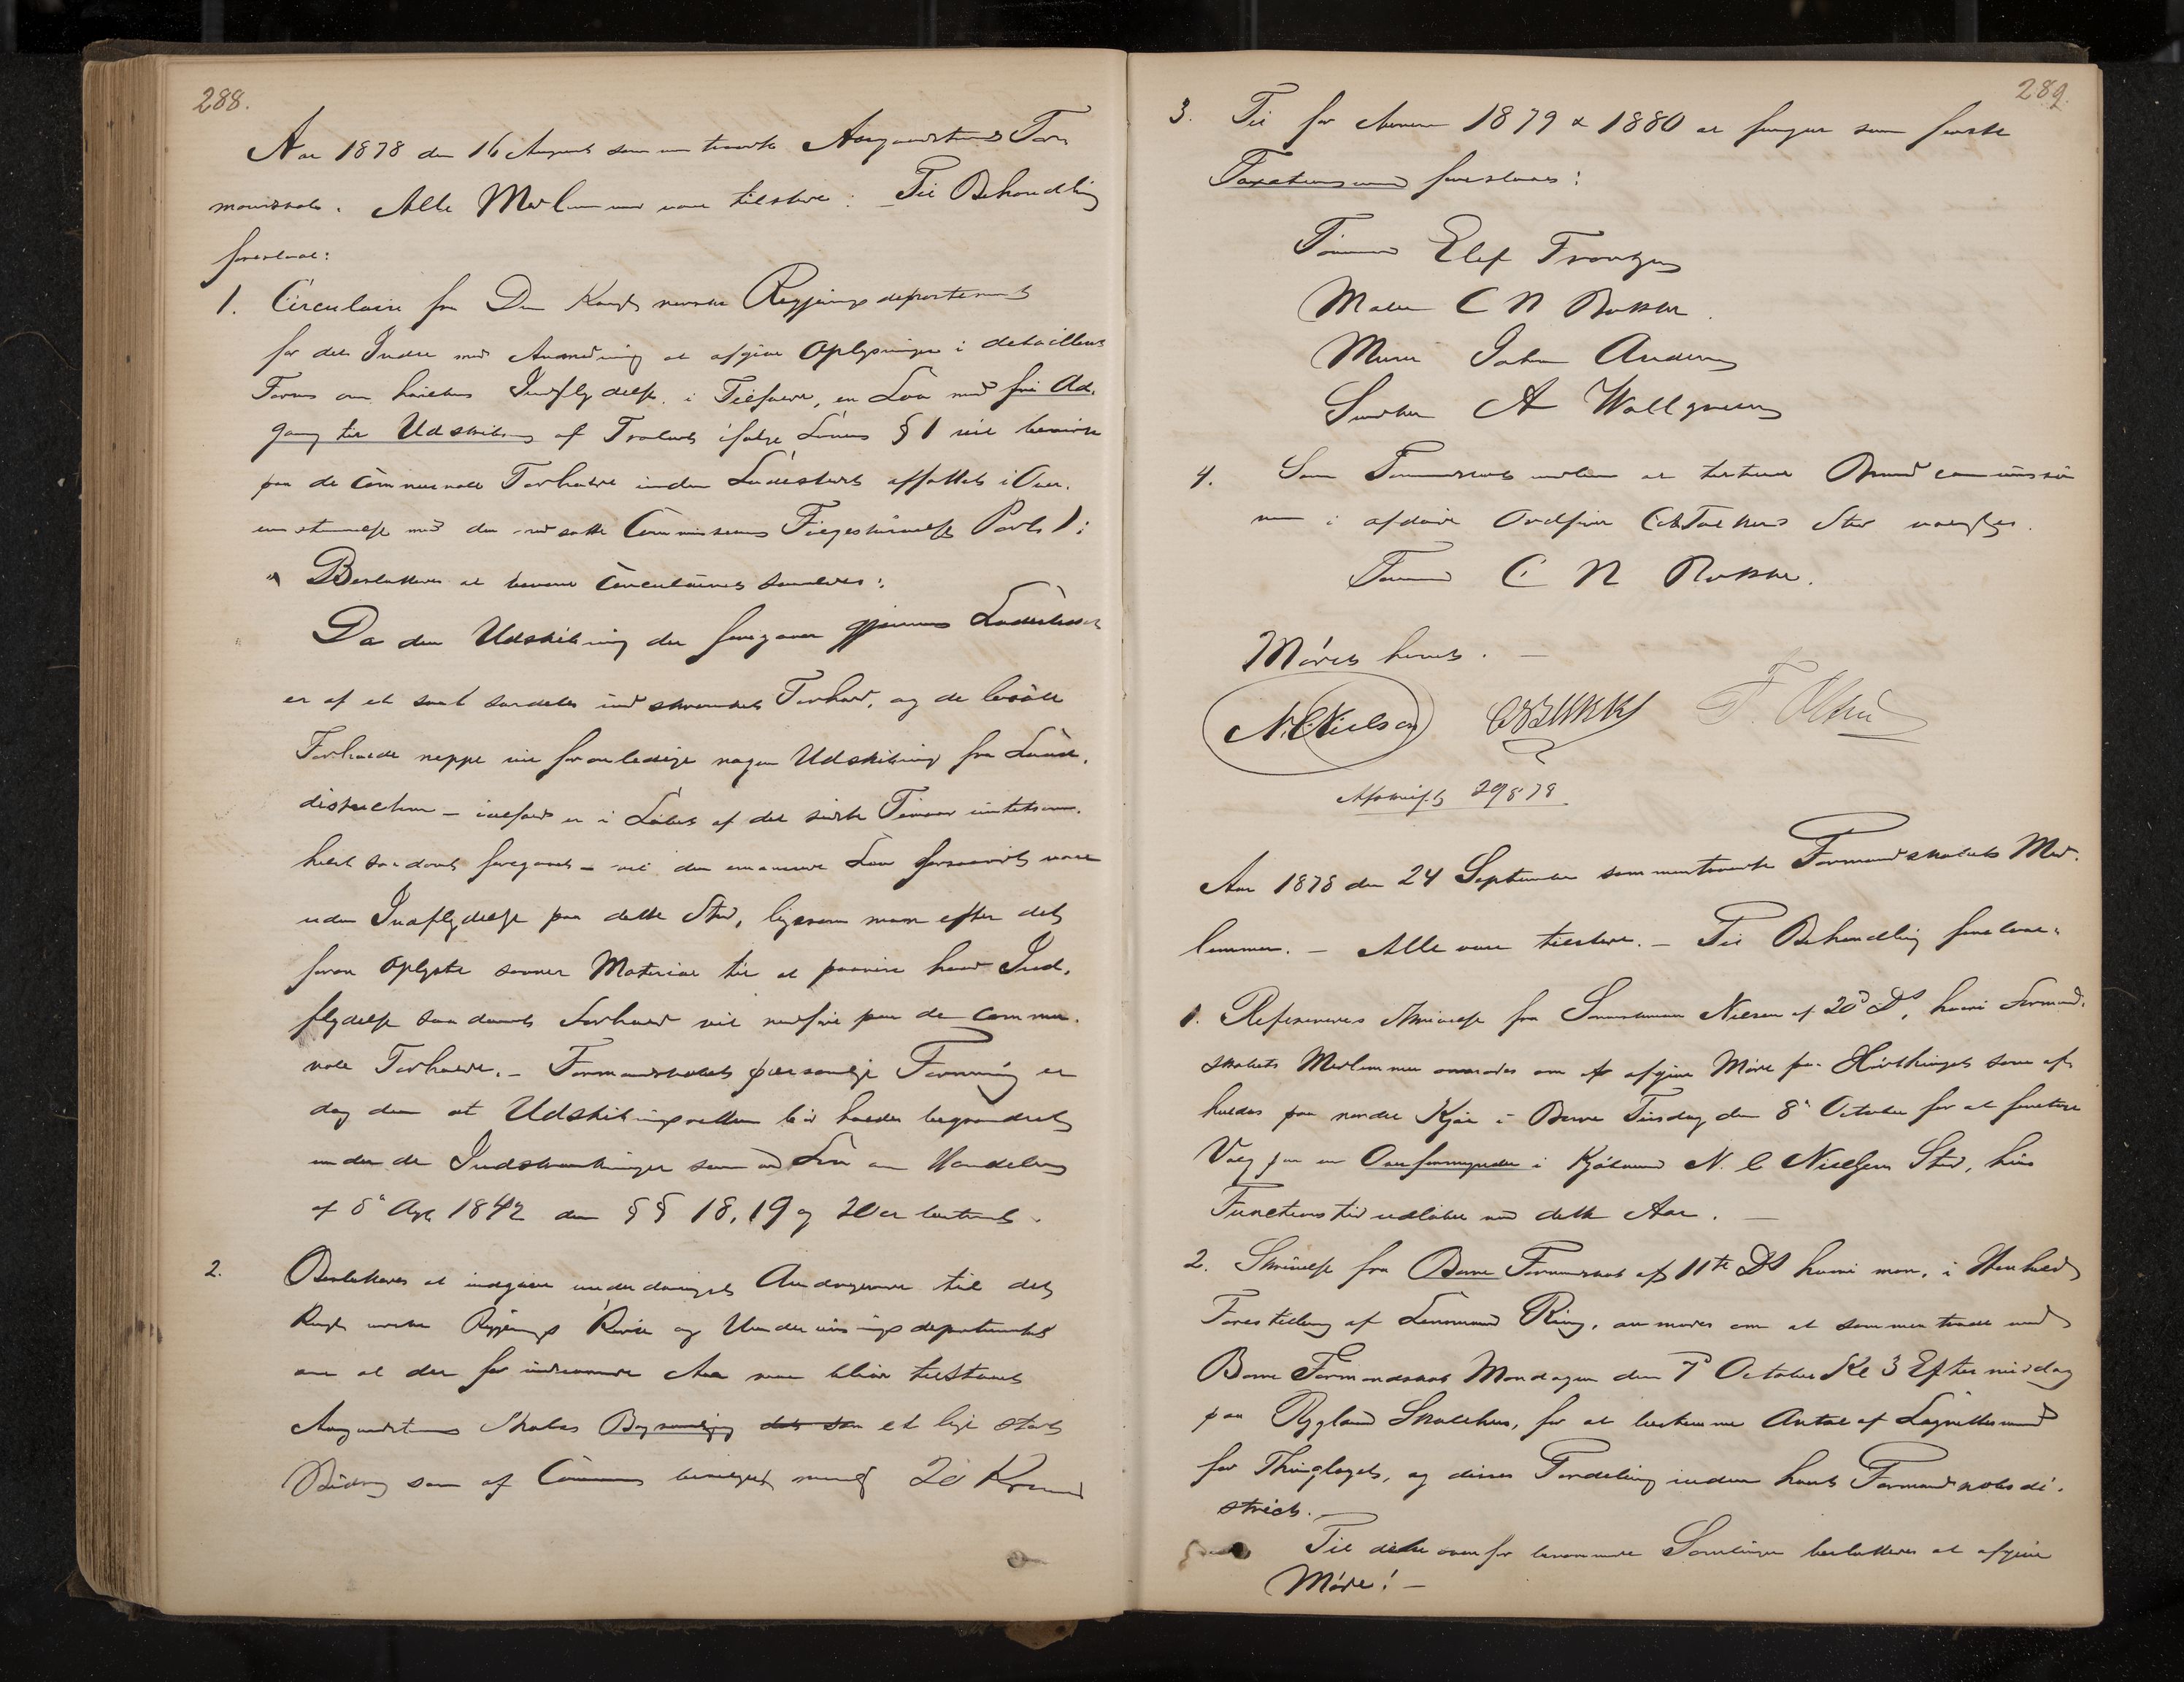 288.
Aar 1878 den 16 August sammentraadte Aasgaardstrands For
mandskab. Alle Medlemmer vare tilstede: Til Behandling
forelaae:
1. Circulaire fra Den Kongl norske Regjerings departement
for det Indre med Anmodning at afgive Oplysninger i detailleret
Form om hvilken Indflydelse i Tilfælde, en Lov med fri Ad.
gang til Udskibning af Trælast ifølge Lovens § 1 vil bevirke
paa de communale Forhold inden Ladestedet affattet i Over.
ensstemmelse med den nedsatte Commissions Post 1:
Besluttedes at besvare Circulairet saaledes:
Da den Udskibning der foregaaer gjennem Ladestedet
er af et saa særdeles indskrænket Forhold, og de locale
Forholde neppe vil foranledige nogen Udskibning fra Land.
districtern – ialfald er i Løbet af det sidste Tiaar intetsom.
helst saadant foregaaet – vil den Lov forsaavidt være
uden Indflydelse paa dette Sted, ligesom man efter det
foran Oplyste savner Materiale til at paavise hvad Ind.
flydelse saadant Forhold vil medføre paa de commu.
nale Forholde. – Formandskabets personlige Formening er
dog den at Udskibningsretten bør holdes begrændset
under de Indskrænkninger som ved Lov om Handelen
af 8' Aug 1842 dens §§ 18, 19 og 20 er bestemt.
2. Besluttedes at indgive underdanigst Andragende til det
Kongl norske Regjerings Kirke og Undervisningsdepartementet
om at der for indeværende Aar maa blive tilstaaet
Aasgaardstrands Skoles Bogsamling et lige stort
Bidrag som af Communen bevilget nemlig 20 Kroner
289.
3. Til for Aarene 1879 & 1880 at fungere som faste
Taxationsmænd foreslaaes:
Tømmermand Elef Frantzen
Maler C N Bakke
Murer Johan Anderssen
Snedker A Wallgreen
4. Som Formandskabets medlem at tiltræde Brandcommissio
nen i afdøde Ordfører Sted vælges
Formand C N Bakke.
Mødet hævet. –
N. C Nielsen
F. Olsen
Afskrift 29/8 78
Aar 1878 den 24 September sammentraadte Formandskabets Med.
lemmer. – Alle vare tilstede. – Til Behandling forelaae:
1. Refereredes Skrivelse fra Lensmanden Nielsen af 20d Ds, hvori Formand.
skabets Medlemmer anmodes om at afgive Møde paa Høstthinget som af
holdes paa nordre Kjær i Borre Tirsdag den 8' October for at foretage
Valg paa en Overformynder i Kjøbmand N. C Nielsens Sted, hvis
Functionstid udløber med dette Aar. –
2. Skrivelse fra Borre Formandskab af 11te Ds hvori man, i Henhold
Forestilling af Lensmand Ring, anmodes om at sammentræde med
Borre Formandskab Mandagen den 7d October Kl 3 Eftermiddag
paa Rygland Skolehus, for at bestemme Antal af Lagrettesmænd
for Thinglaget, og disses Fordeling inden hvert Formandskabsdi.
strict. –
Til dette ovenfor benævnte Samlinger besluttedes at afgive
Møde! –